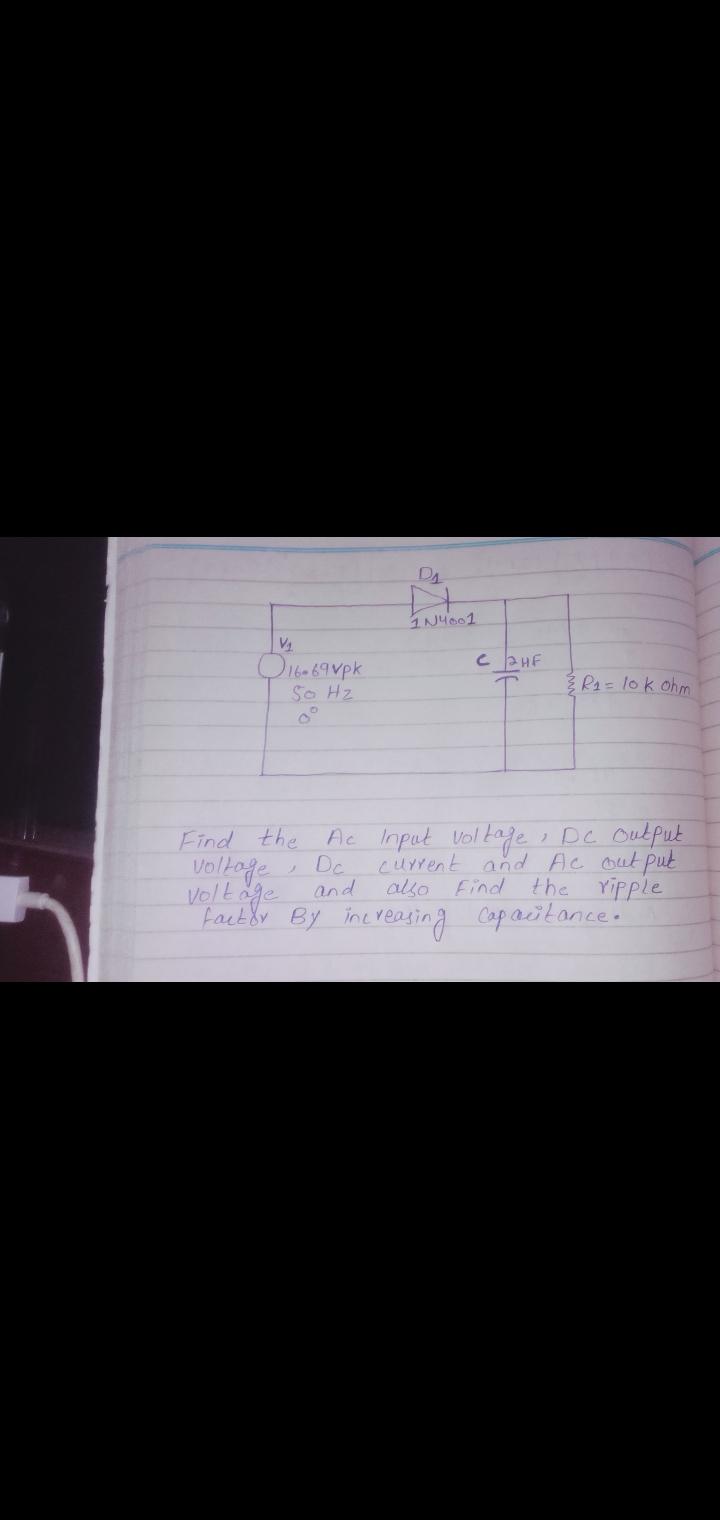 D1
1N4001
V1
16.69Vpk
50 Hz
0°
C 2HF
R1 = 10 k Ohm
Find the Ac Input voltage, DC output
voltage, Dc current and Ac output
voltage and also Find the ripple
factor By increasing Capacitance.